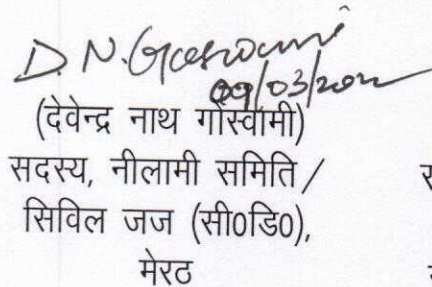 D. N. Goswami
09/03/2022
(देवेन्द्र नाथ गोस्वामी)
सदस्य, नीलामी समिति /
सिविल जज (सी0डि0),
मेरठ